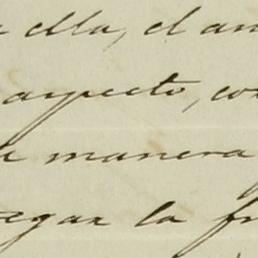 ella, el am
aspecto, con
a manera
egar la fr